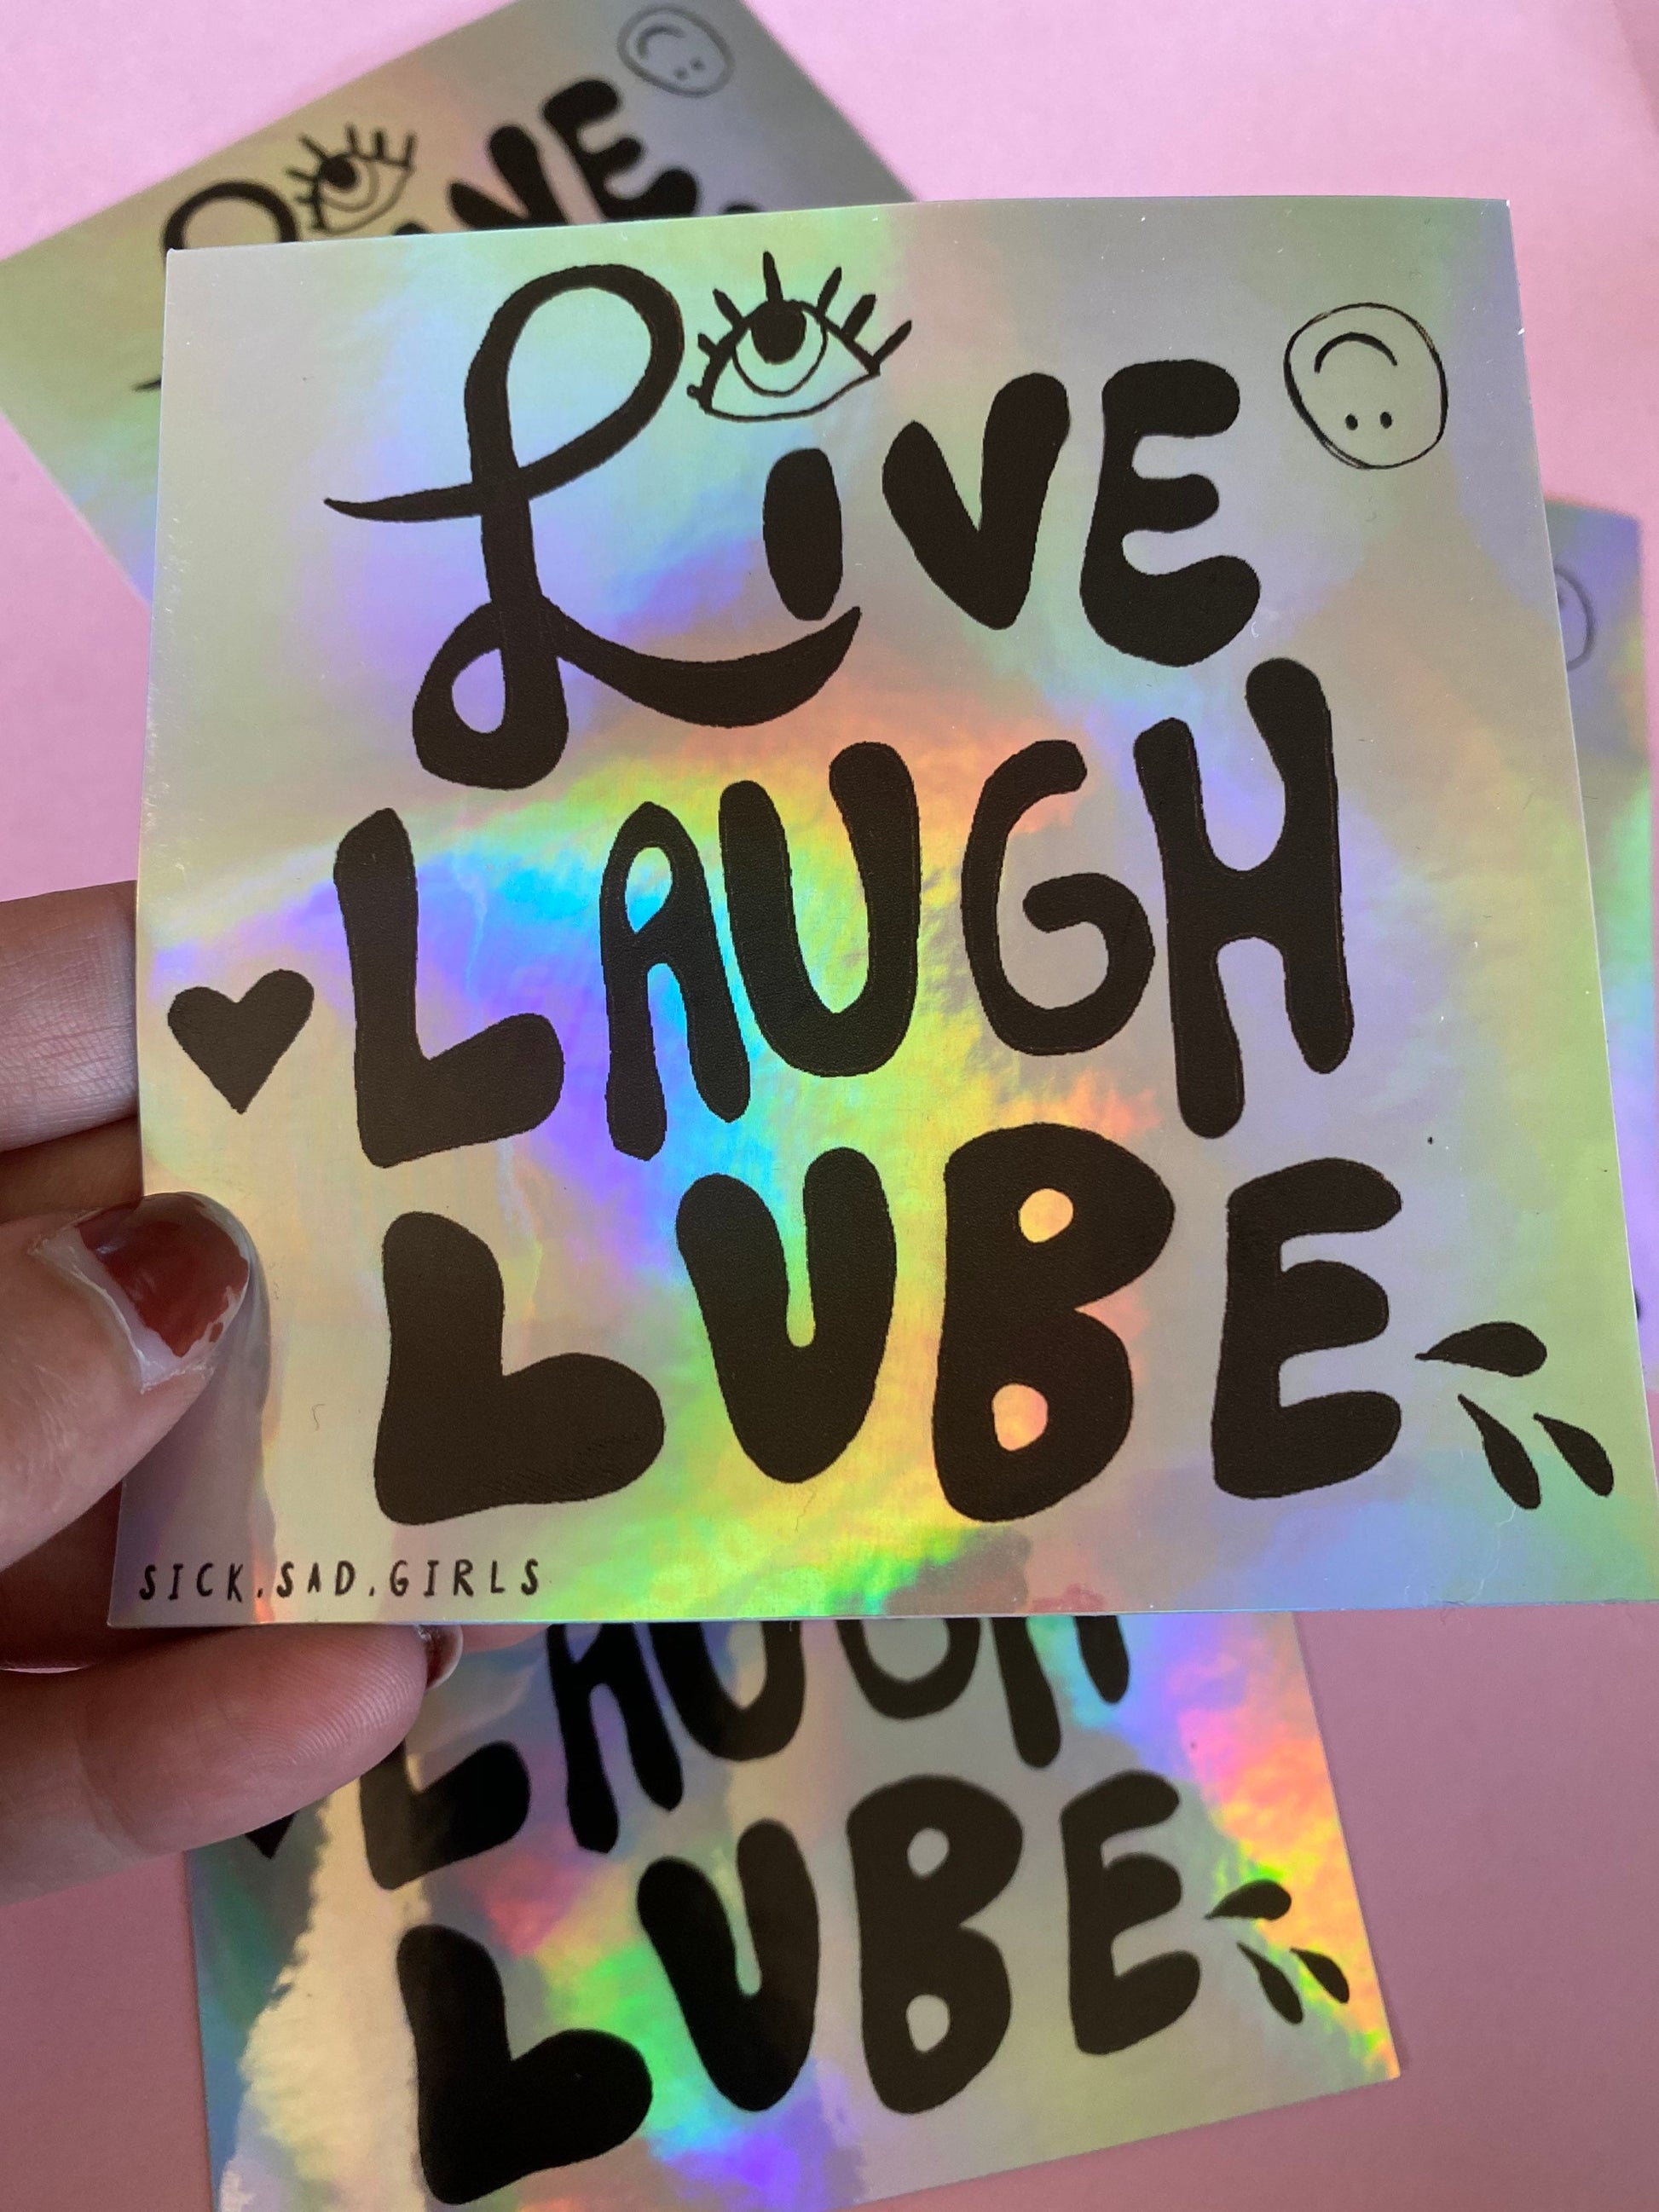 LIVE
LIVE
LAUGH
LUBE
SICK.SAD.GIRLS
LAUGH
LUBE